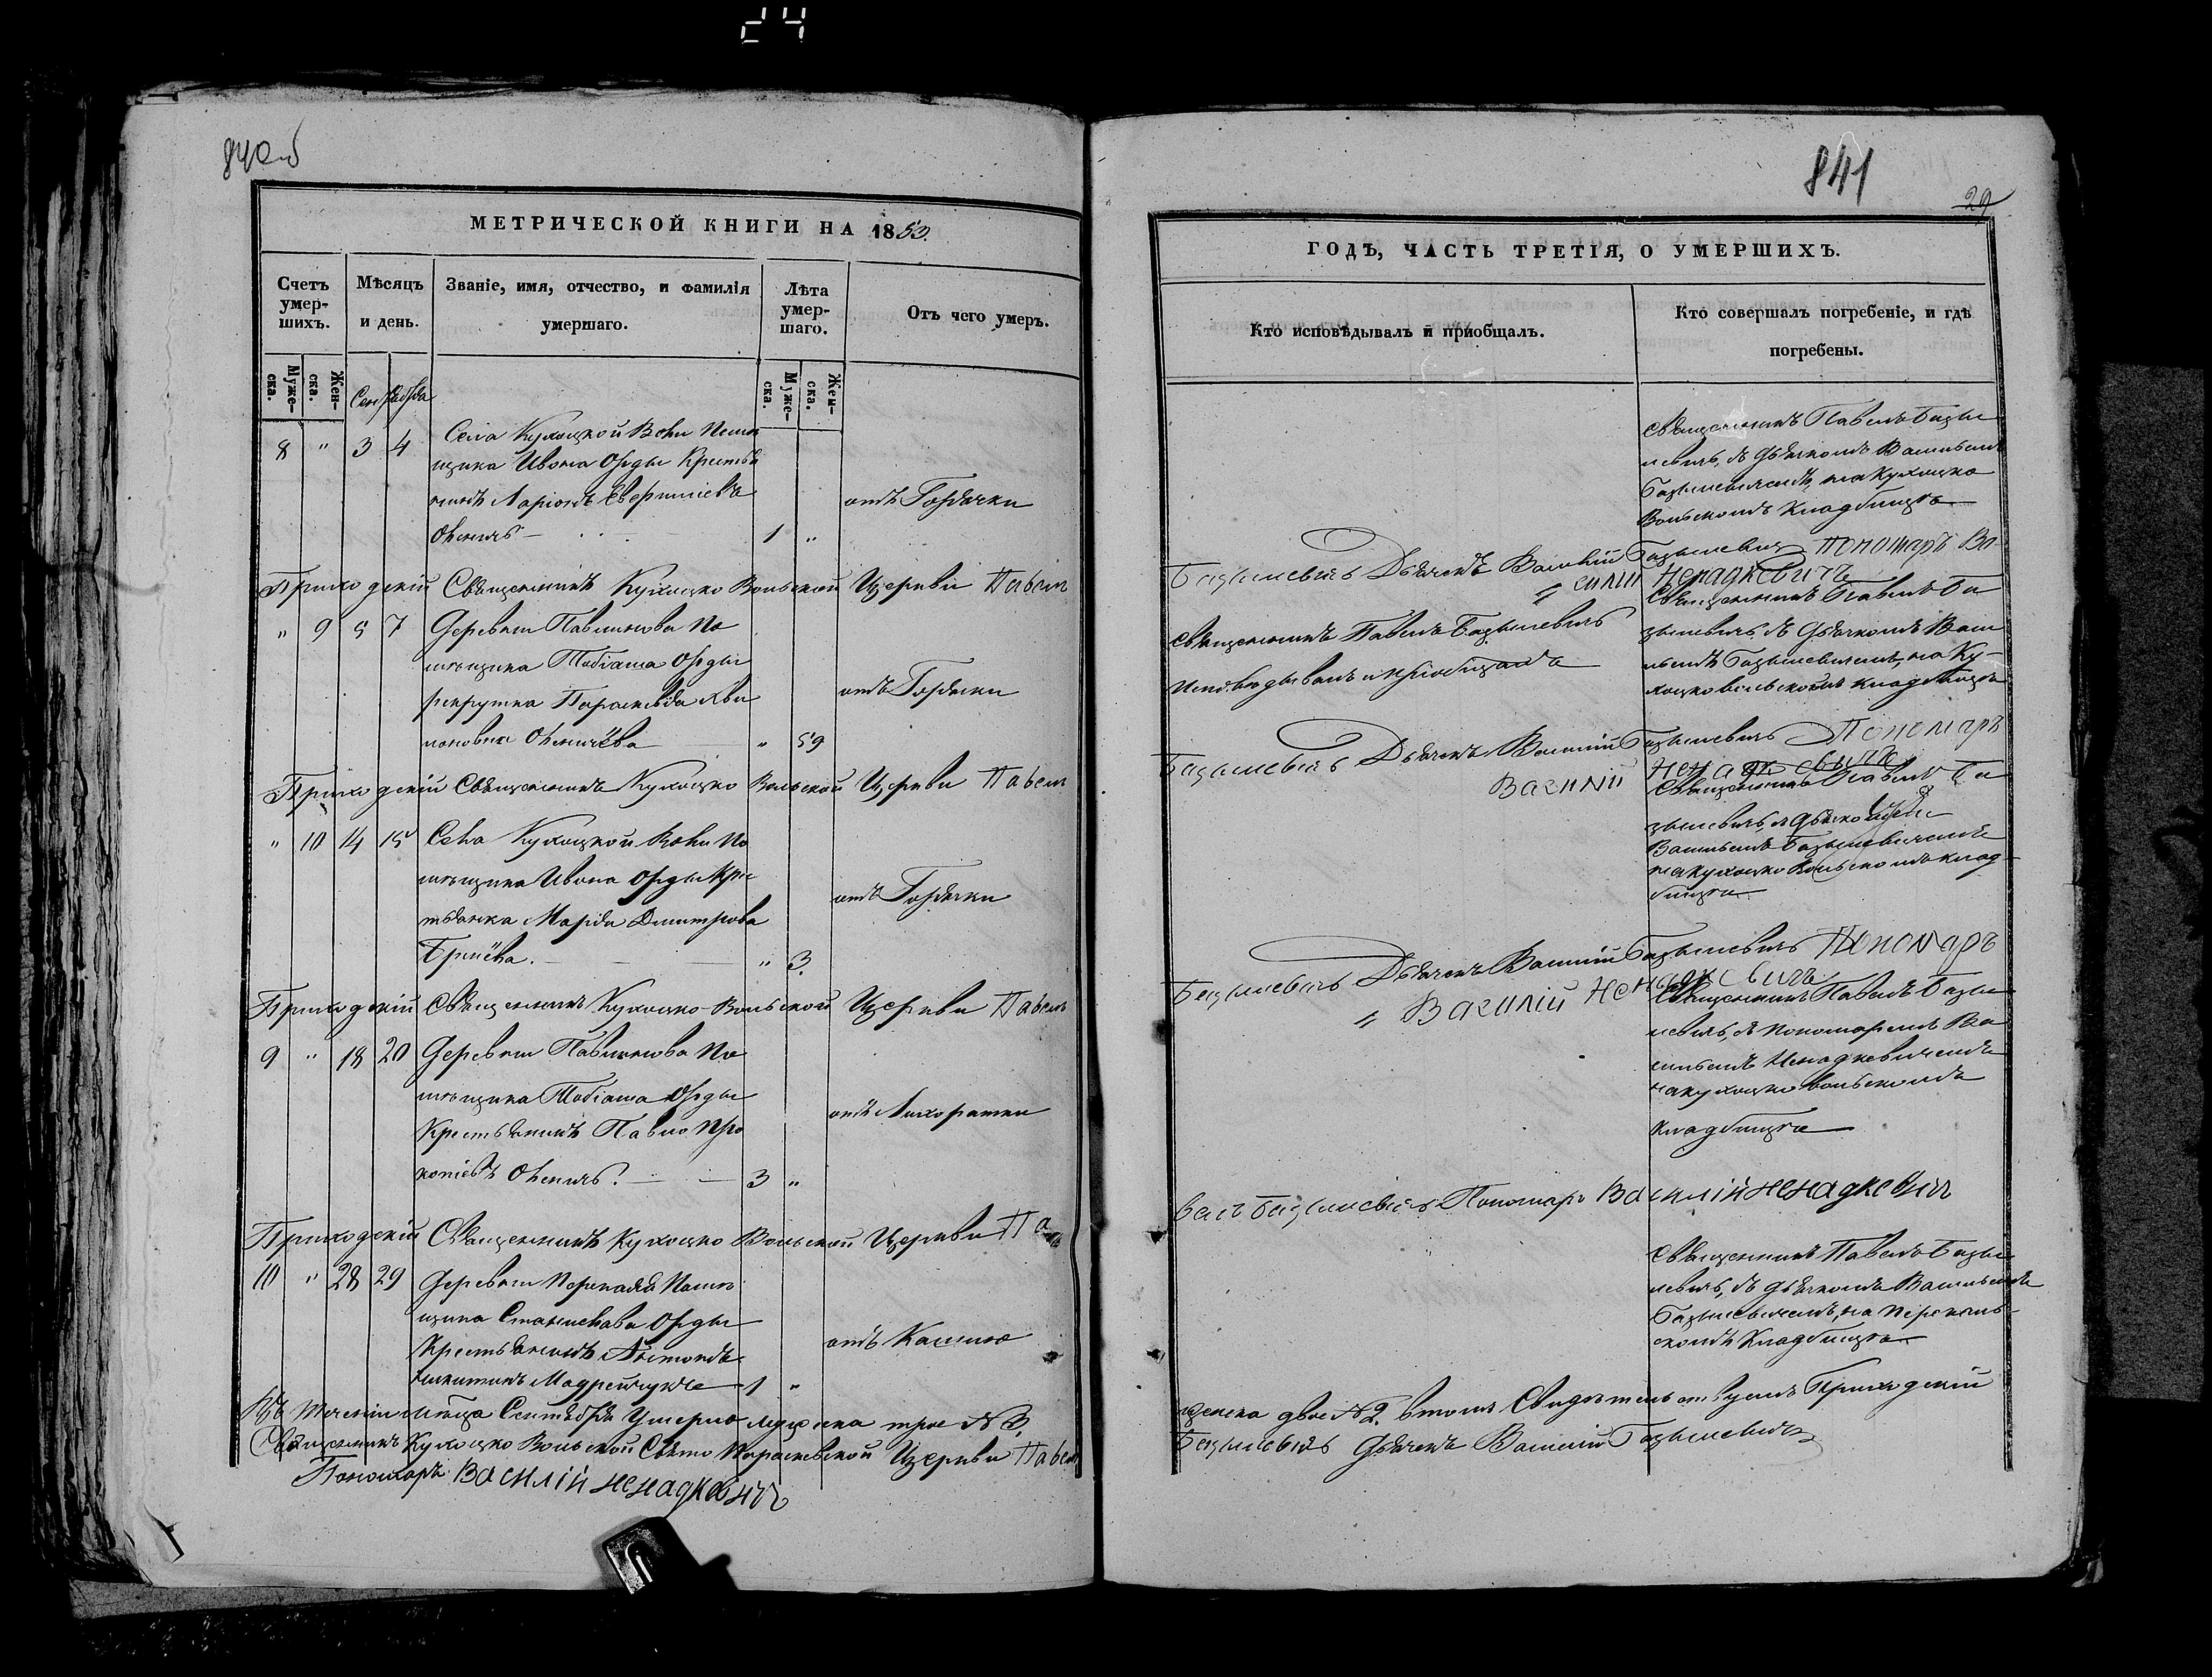 24
840об
МЕТРИЧЕСКОЙ КНИГИ НА 1850.
Счетъ умер-шихъ.
Мѣсяцъ и день.
Званіе, имя, отчество, и фамилія умершаго.
Лѣта умер-шаго.
Отъ чего умеръ.
Муже-ска.
Жен-ска.
Муже-ска.
Жен-ска.
8 " 3 4 Села Кухоцкой Воли Помѣ
щика Ивона Орды Крестья
нинъ Ларіонъ
1 "
отъ Горячки
Приходскій Священникъ Кухоцко Вольской Церкви Павелъ
" 9 5 7 Деревни Павлинова По
мѣщика Тобіаша Орды
рекрутка Параскевіа
" 59
отъ Горячки
Приходскій Священникъ Кухоцко Вольской Церкви Павелъ
" 10 14 15 Села Кухоцкой Воли По
мѣщика Ивона Орды Крес
тьянка Марія Дмитрова
" 3.
отъ Горячки
Приходскій Священникъ Кухоцко-Вольской Церкви Павелъ
9 " 18 20 Деревни Павлинова По
мѣщика Тобіаша Орды
Крестьянинъ Павло Про
копіевъ
3 "
отъ Лихоратки
Приходскій Священникъ Кухоцко Вольской Церкви Па
10 " 28 29 Деревни Помѣ
щика Станислава Орды
Крестьянинъ Антонъ
Никитинъ
1 "
отъ Кашлю
Въ теченіи мѣсяца Сентября Умерло мужеска трое №3.
Священникъ Кухоцко Вольской Свято Параскевской Церкви Павелъ
Пономаръ Василій Ненадкевичъ
841
29
ГОДЪ, ЧАСТЬ ТРЕТІЯ, О УМЕРШИХЪ.
Кто исповѣдывалъ и приобщалъ.
Кто совершалъ погребеніе, и гдѣ погребены.
Священникъ Павелъ Базы
левичъ, съ Дьячкомъ Васильемъ
Базылевичемъ, на Кухоцко
Вольскомъ Кладбищѣ
Базылевичъ Дьячекъ Василій Базылевичъ Пономаръ Ва-
силій Ненадкевичъ
Священникъ Павелъ Базылевичъ
Исповѣдывалъ и пріобщалъ
Священникъ Павелъ Ба
зылевичъ, съ Дьячкомъ Васи
льемъ Базылевичемъ, на Ку-
хоцковольскомъ кладбищѣ
Базылевичъ Дьячекъ Василій Базылевичъ Пономаръ
Василій Ненадкевичъ
Священникъ Павелъ Ба
зылевичъ, съ Дьячкомъ
Васильемъ Базылевичемъ
на кухоцко Вольскомъ клад-
бищѣ
Базылевичъ Дьячекъ Василій Базылевичъ Пономаръ
Василій Ненадкевичъ
Священникъ Павелъ Базы
левичъ, съ пономаремъ Ва
сильемъ Ненадкевичемъ
на кухоцко вольскомъ
Кладбищѣ
велъ Базылевичъ Пономаръ Василій Ненадкевичъ
Священникъ Павелъ Базы
левичъ, съ дьячкомъ Васильемъ
Базылевичемъ, на
скомъ Кладбищѣ
женска двое №2. въ томъ Свидѣтельствуемъ Приходскій
Базылевичъ Дьячекъ Василій Базылевичъ